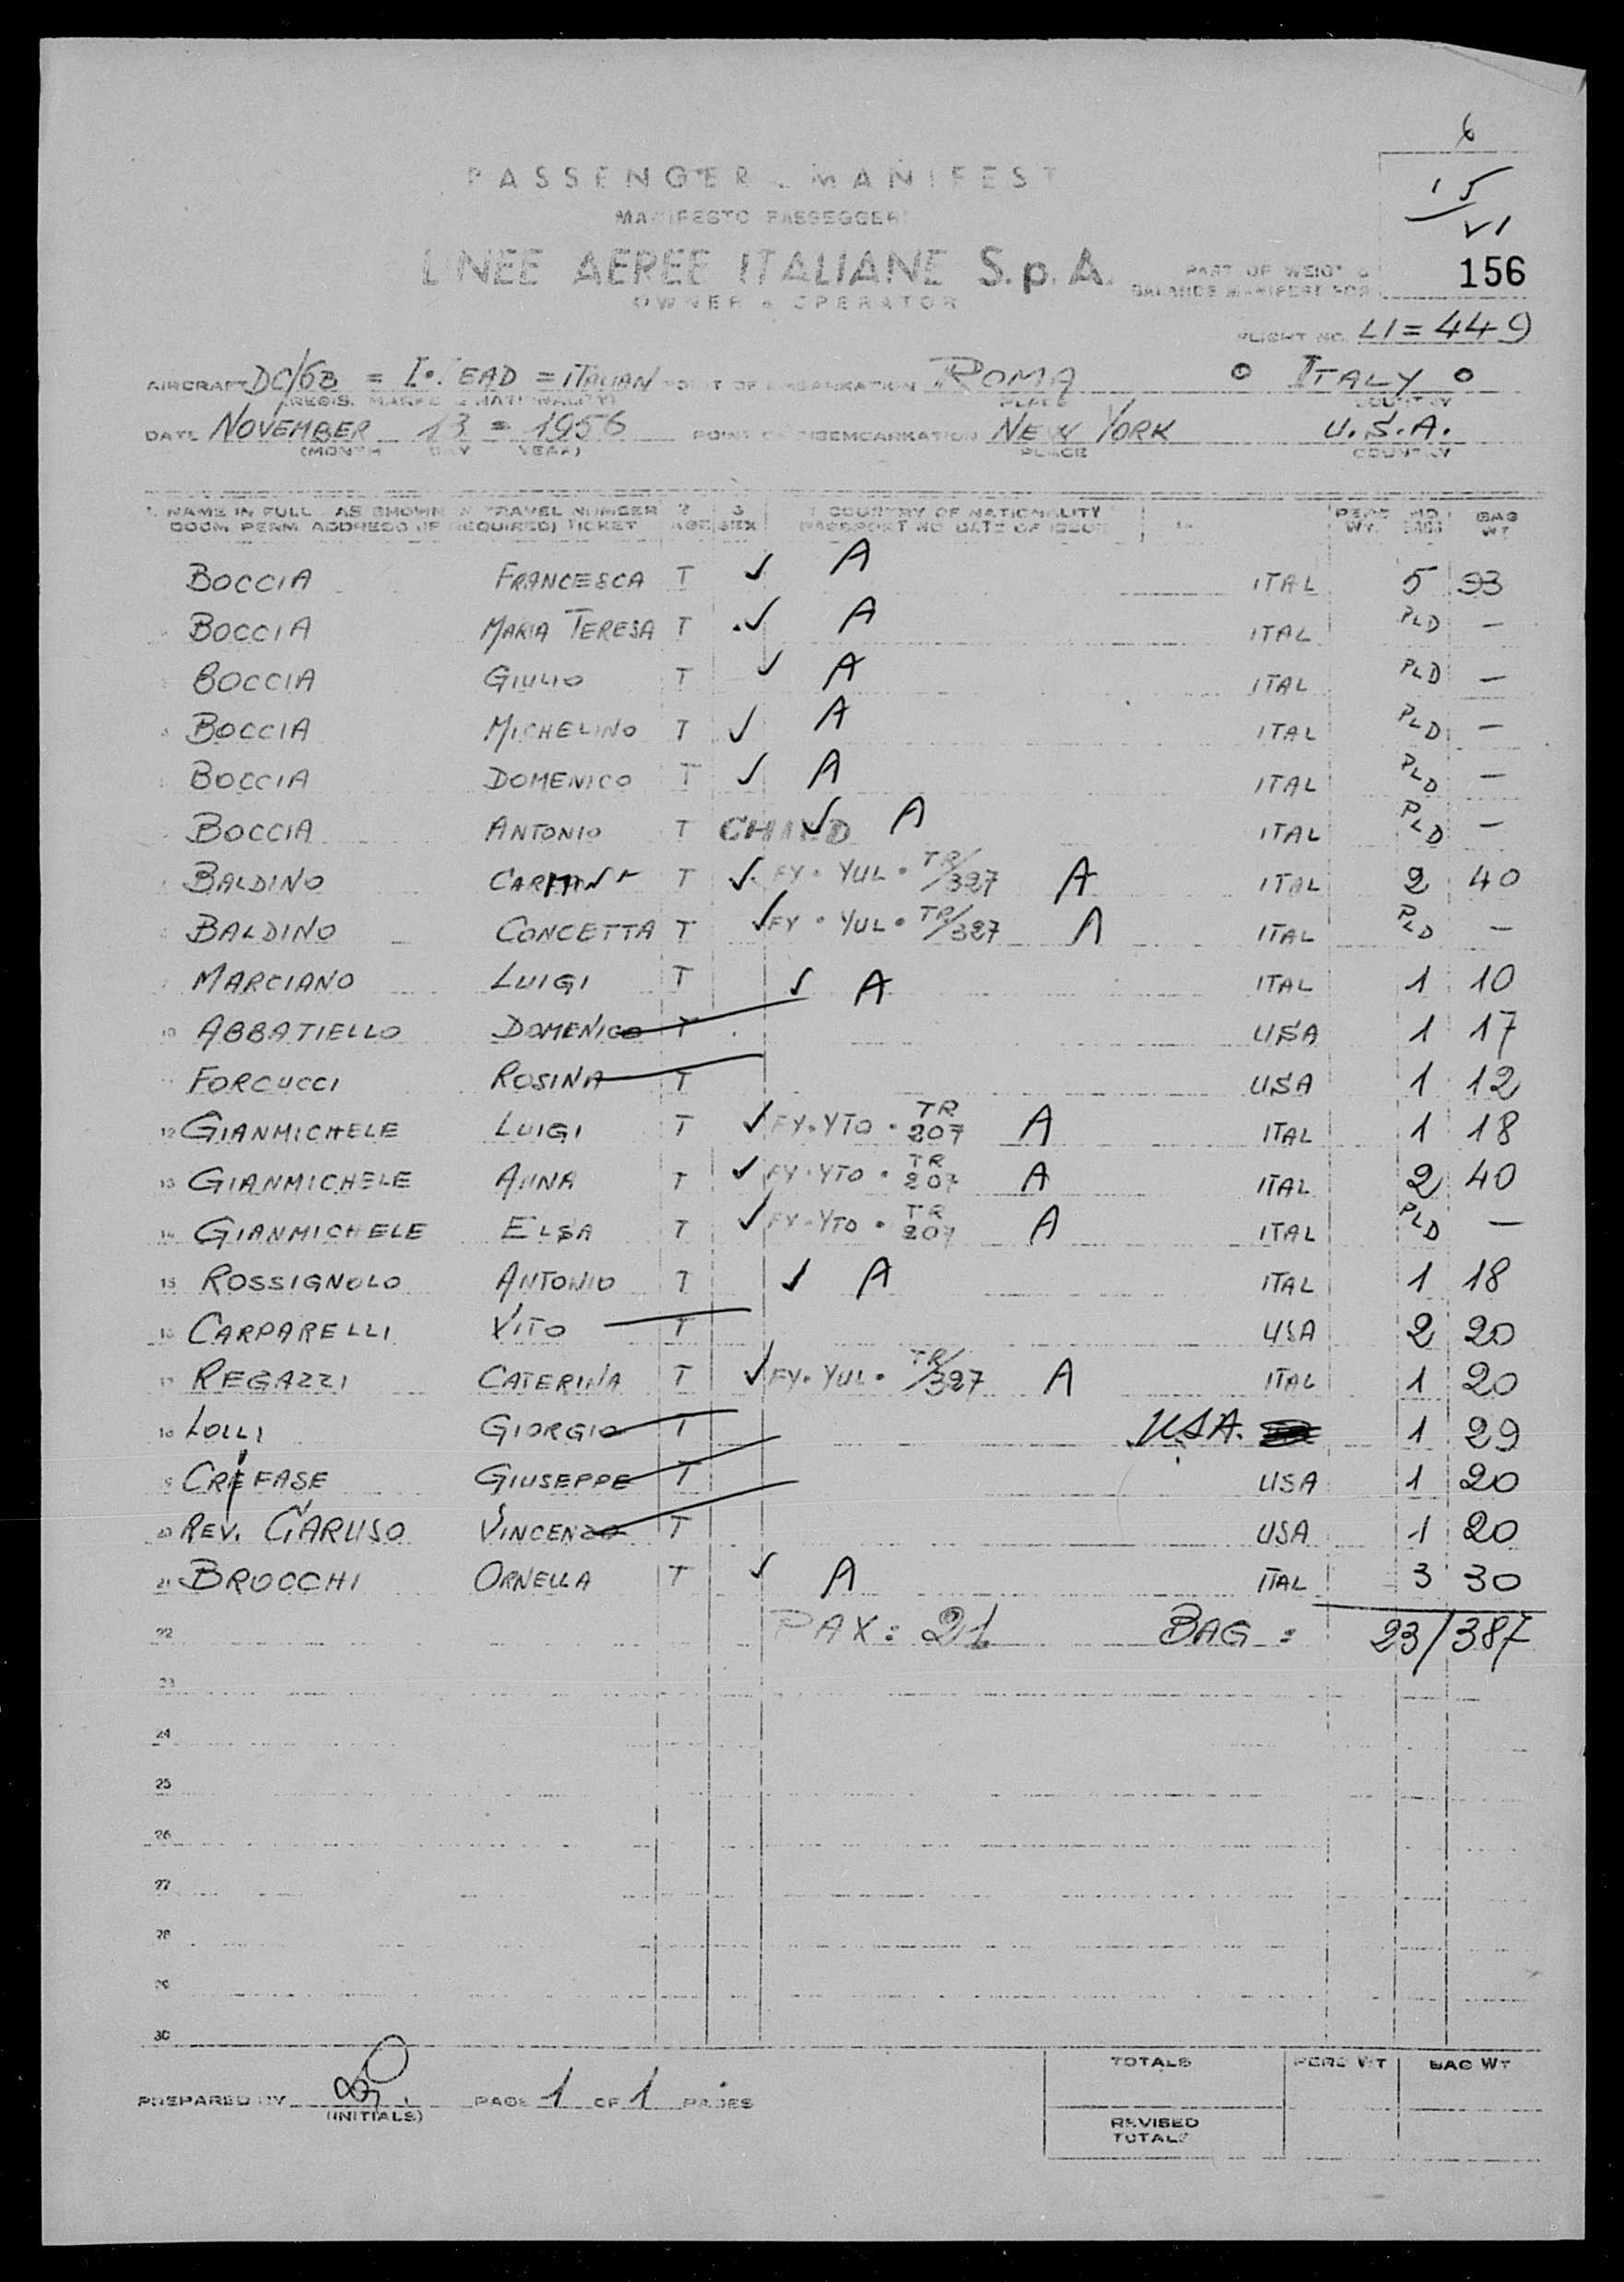 6
PASSENGER MANIFEST
15
VI
MANIFESTO PASSEGGERI
LINEE AEREE ITALIANE S.p.A.
PART OF WEIGT &
BALANCE MANIFEST FOR
156
OWNER & OPERATOR
FLIGHT NO. LI=449
AIRCRAFT DC/6B = I· EAD = ITALIAN POINT OF EMBARKATION ROMA ITALY
(REGIS. MARKS & NATIONALITY) PLACE COUNTRY
DATE NOVEMBER 13 = 1956 POINT OF DISEMBARKATION NEW YORK U.S.A.
(MONTH DAY YEAR) PLACE COUNTRY
NAME IN FULL AS SHOWN TRAVEL NUMBER 2 3 COUNTRY OF NATIONALITY PERS NO BAG
DOCM. PERM. ADDRESS (IF REQUIRED) TICKET AGE SEX PASSPORT NO DATE OF ISSUE WT. BAGS WT
BOCCIA FRANCESCA T ✓ A ITAL 5 93
BOCCIA MARIA TERESA T ✓ A ITAL PLD —
BOCCIA GIULIO T ✓ A ITAL PLD —
BOCCIA MICHELINO T ✓ A ITAL PLD —
BOCCIA DOMENICO T ✓ A ITAL PLD —
BOCCIA ANTONIO T CHILD ✓ A ITAL PLD —
BALDINO T ✓ FY · YUL · TR/327 A ITAL 2 40
BALDINO CONCETTA T ✓ FY · YUL · TR/327 A ITAL PLD —
MARCIANO LUIGI T ✓ A ITAL 1 10
10 ABBATIELLO DOMENICO T USA 1 17
FORCUCCI ROSINA T USA 1 12
12 GIANMICHELE LUIGI T ✓ FY · YTO · TR 207 A ITAL 1 18
13 GIANMICHELE ANNA T ✓ FY · YTO · TR 207 A ITAL 2 40
14 GIANMICHELE ELSA T ✓ FY · YTO · TR 207 A ITAL PLD —
15 ROSSIGNOLO ANTONIO T ✓ A ITAL 1 18
16 CARPARELLI VITO T USA 2 20
17 REGAZZI CATERINA T ✓ FY · YUL · TR/327 A ITAL 1 20
18 LOLLI GIORGIO T USA. 1 29
19 CREFASE GIUSEPPE T USA 1 20
20 REV. CARUSO VINCENZO T USA 1 20
21 BROCCHI ORNELLA T ✓ A ITAL 3 30
22 PAX: 21 BAG = 23/387
23
24
25
26
27
28
29
30
TOTALS PERS WT BAG WT
PREPARED BY
(INITIALS)
PAGE 1 OF 1 PAGES
REVISED
TOTALS